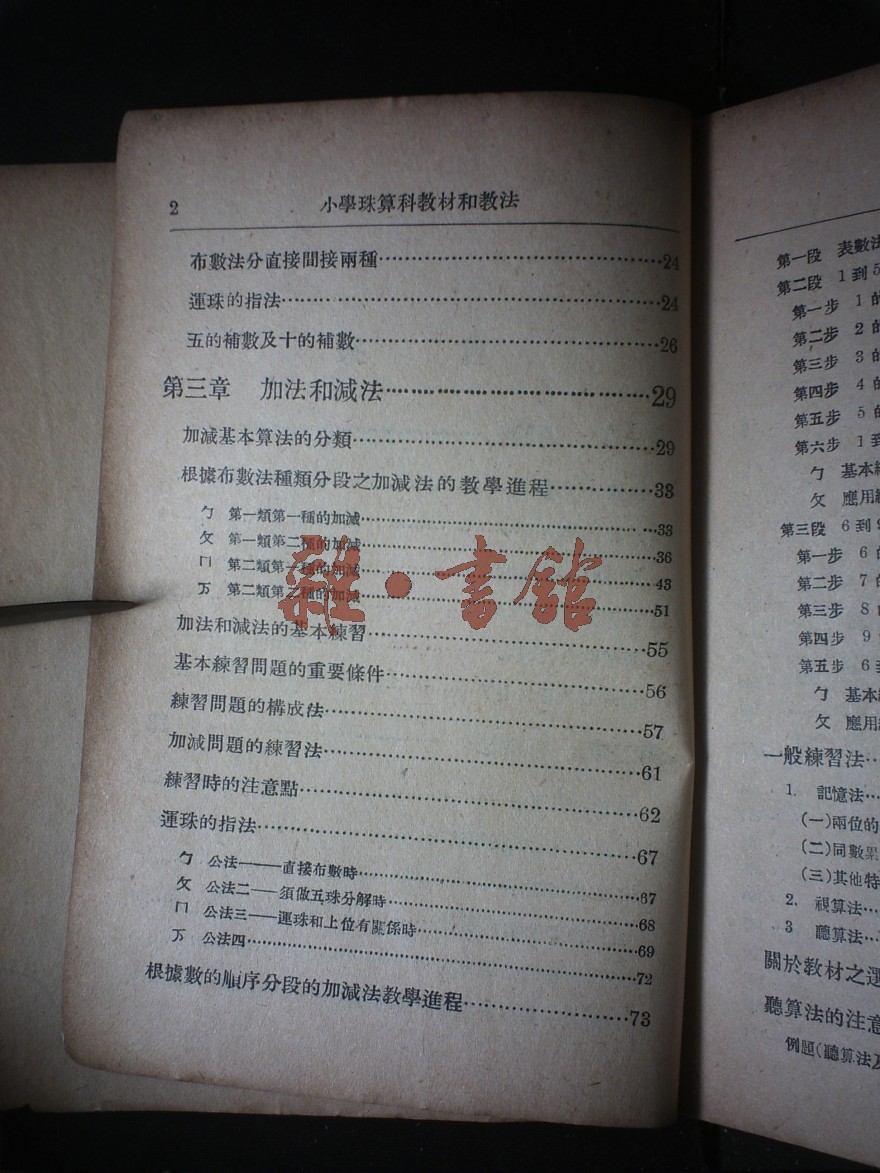 2 小學珠算科教材和教法
布數法分直接間接兩種…………24
運珠的指法…………24
五的補數及十的補數…………26
第三章 加法和減法…………29
加減基本算法的分類…………29
根據布數法種類分段之加減法的教學進程…………33
ㄅ 第一類第一種的加減…………33
ㄆ 第一類第二種的加減…………36
ㄇ 第二類第一種的加減…………43
ㄎ 第二類第二種的加減…………51
雜·書館
加法和減法的基本練習…………55
基本練習問題的重要條件…………56
練習問題的構成法…………57
加減問題的練習法…………61
練習時的注意點…………62
運珠的指法…………67
ㄅ 公法一——直接布數時…………67
ㄆ 公法二——須做五珠分解時…………68
ㄇ 公法三——運珠和上位有關係時…………69
ㄎ 公法四…………72
根據數的順序分段的加減法教學進程…………73
第一段 表數法
第二段 1到5
第一步 1的
第二步 2的
第三步 3的
第四步 4的
第五步 5的
第六步 1到
ㄅ 基本練
ㄆ 應用練
第三段 6到9
第一步 6的
第二步 7的
第三步 8
第四步 9
第五步 6到
ㄅ 基本
ㄆ 應用
一般練習法…
1. 記憶法…
(一)兩位的
(二)同數累
(三)其他特
2. 視算法…
3 聽算法…
關於教材之選
聽算法的注意
例題(聽算法及